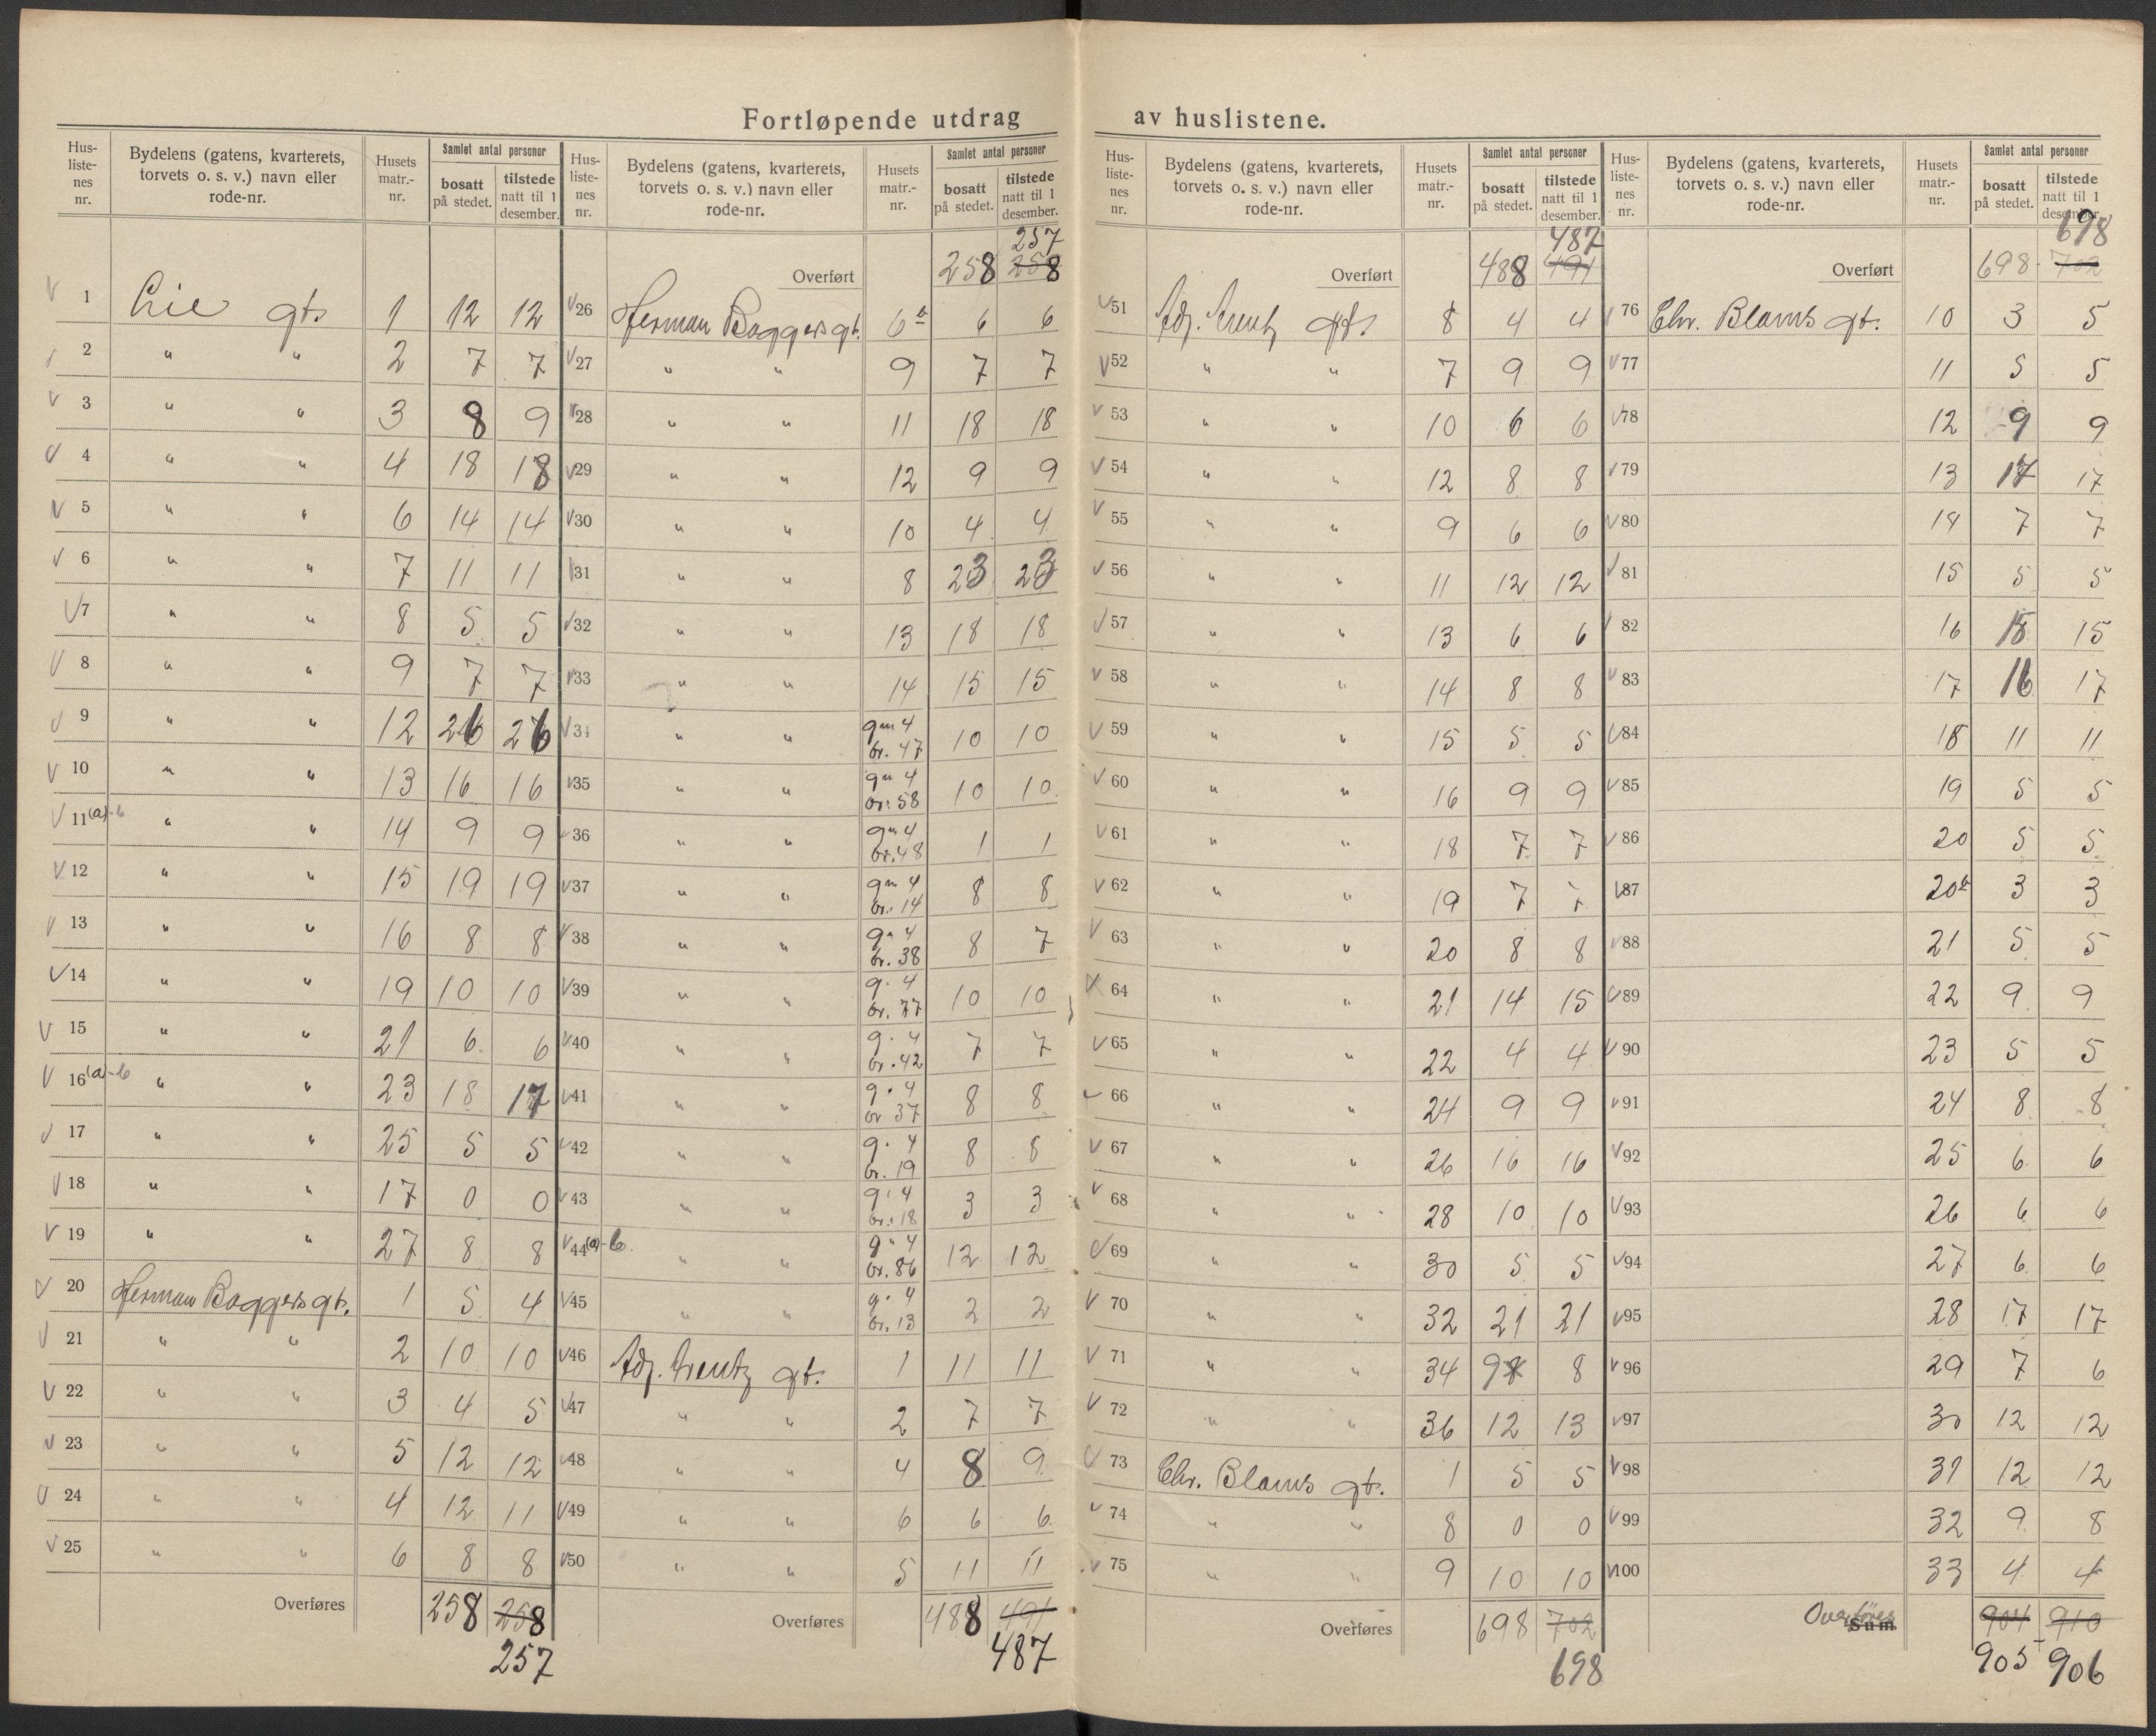 Fortløpende utdrag av huslistene.
Hus-liste-nes nr. | Bydelens (gatens, kvarterets, torvets o. s. v.) navn eller rode-nr. | Husets matr.-nr. | Samlet antal personer bosatt på stedet. | tilstede natt til 1 desember.
1 Lie gt. 1 12 12
2 " " 2 7 7
3 " " 3 8 9
4 " " 4 18 18
5 " " 6 14 14
6 " " 7 11 11
7 " " 8 5 5
8 " " 9 7 7
9 " " 12 26 26
10 " " 13 16 16
11 (a)-b " " 14 9 9
12 " " 15 19 19
13 " " 16 8 8
14 " " 19 10 10
15 " " 21 6 6
16 (a)-b " " 23 18 17
17 " " 25 5 5
18 " " 17 0 0
19 " " 27 8 8
20 Herman Baggers gt. 1 5 4
21 " " 2 10 10
22 " " 3 4 5
23 " " 5 12 12
24 " " 4 12 11
25 " " 6 8 8
Overføres 258 258
257
Hus-liste-nes nr. | Bydelens (gatens, kvarterets, torvets o. s. v.) navn eller rode-nr. | Husets matr.-nr. | Samlet antal personer bosatt på stedet. | tilstede natt til 1 desember.
257
Overført 258 258
26 Herman Baggers gt. 6b 6 6
27 " " 9 7 7
28 " " 11 18 18
29 " " 12 9 9
30 " " 10 4 4
31 " " 8 23 23
32 " " 13 18 18
33 " " 14 15 15
34 " " gn 4 br. 47 10 10
35 " " gn 4 br. 58 10 10
36 " " gn 4 br. 48 1 1
37 " " gn 4 br. 14 8 8
38 " " gn 4 br. 38 8 7
39 " " g. 4 br. 77 10 10
40 " " g. 4 br. 42 7 7
41 " " g. 4 br 37 8 8
42 " " g. 4 br. 19 8 8
43 " " g. 4 br. 18 3 3
44 (a)-b. " " g. 4 br. 86 12 12
45 " " g. 4 br. 13 2 2
46 Adj. Arentz gt. 1 11 11
47 " " 2 7 7
48 " " 4 8 9
49 " " 6 6 6
50 " " 5 11 11
Overføres 488 491
487
Hus-liste-nes nr. | Bydelens (gatens, kvarterets, torvets o. s. v.) navn eller rode-nr. | Husets matr.-nr. | Samlet antal personer bosatt på stedet. | tilstede natt til 1 desember.
487
Overført 488 491
51 Adj. Arentz gt. 8 4 4
52 " " 7 9 9
53 " " 10 6 6
54 " " 12 8 8
55 " " 9 6 6
56 " " 11 12 12
57 " " 13 6 6
58 " " 14 8 8
59 " " 15 5 5
60 " " 16 9 9
61 " " 18 7 7
62 " " 19 7 7
63 " " 20 8 8
64 " " 21 14 15
65 " " 22 4 4
66 " " 24 9 9
67 " " 26 16 16
68 " " 28 10 10
69 " " 30 5 5
70 " " 32 21 21
71 " " 34 9 8
72 " " 36 12 13
73 Chr. Bloms gt. 1 5 5
74 " " 8 0 0
75 " " 9 10 10
Overføres 698 702
698
Hus-liste-nes nr. | Bydelens (gatens, kvarterets, torvets o. s. v.) navn eller rode-nr. | Husets matr.-nr. | Samlet antal personer bosatt på stedet. | tilstede natt til 1 desember.
698
Overført 698 702
76 Chr. Bloms gt. 10 3 5
77 11 5 5
78 12 9 9
79 13 17 17
80 14 7 7
81 15 5 5
82 16 15 15
83 17 16 17
84 18 11 11
85 19 5 5
86 20 5 5
87 20b 3 3
88 21 5 5
89 22 9 9
90 23 5 5
91 24 8 8
92 25 6 6
93 26 6 6
94 27 6 6
95 28 17 17
96 29 7 6
97 30 12 12
98 31 12 12
99 32 9 8
100 33 4 4
Overføres Sum 904 910
905 906